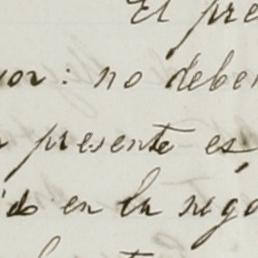 El pre
uor: no deber
presente es
en la nego